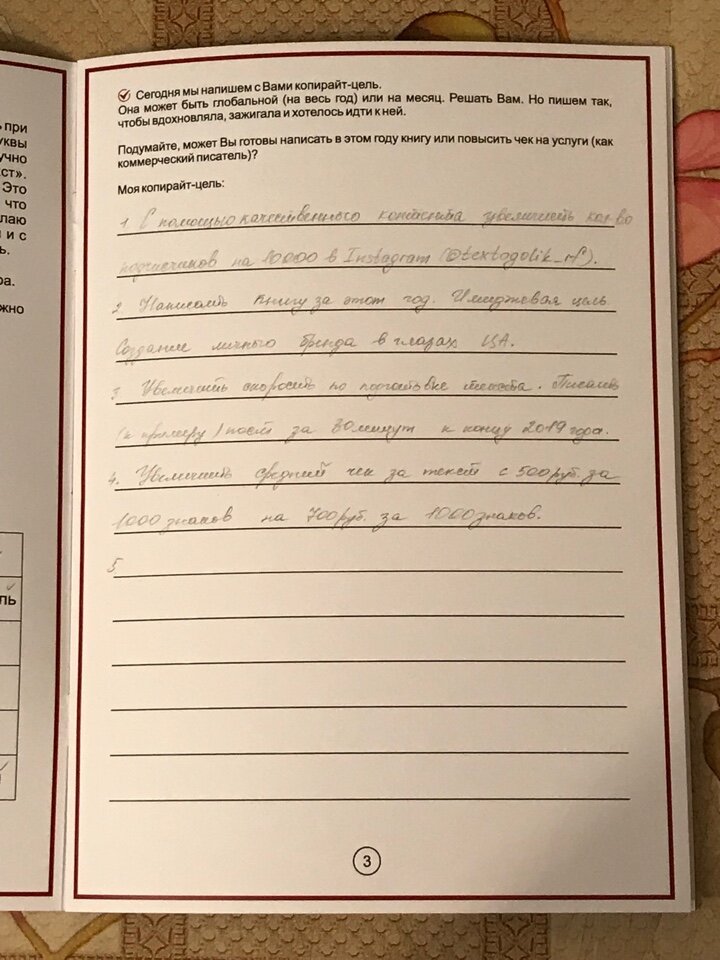 при
квы
учно
ст».
Это
что
лаю
и с
ь.
ра.
жно
ль
Сегодня мы напишем с Вами копирайт-цель.
Она может быть глобальной (на весь год) или на месяц. Решать Вам. Но пишем так,
чтобы вдохновляла, зажигала и хотелось идти к ней.
Подумайте, может Вы готовы написать в этом году книгу или повысить чек на услуги (как
коммерческий писатель)?
Моя копирайт-цель:
1 С помощью качественного контента увеличить кол-во
подписчиков на 10000 в Instagram (@textogolik_rf).
2. Написать книгу за этот год. Имиджевая цель
Создание личного бренда в глазах ЦА.
3 Увеличить скорость по подготовке текста. Писать
(к примеру) пост за 30 минут к концу 2019 года.
4. Увеличить средний чек за текст с 500 руб. за
1000 знаков на 700 руб. за 1000 знаков.
5
3